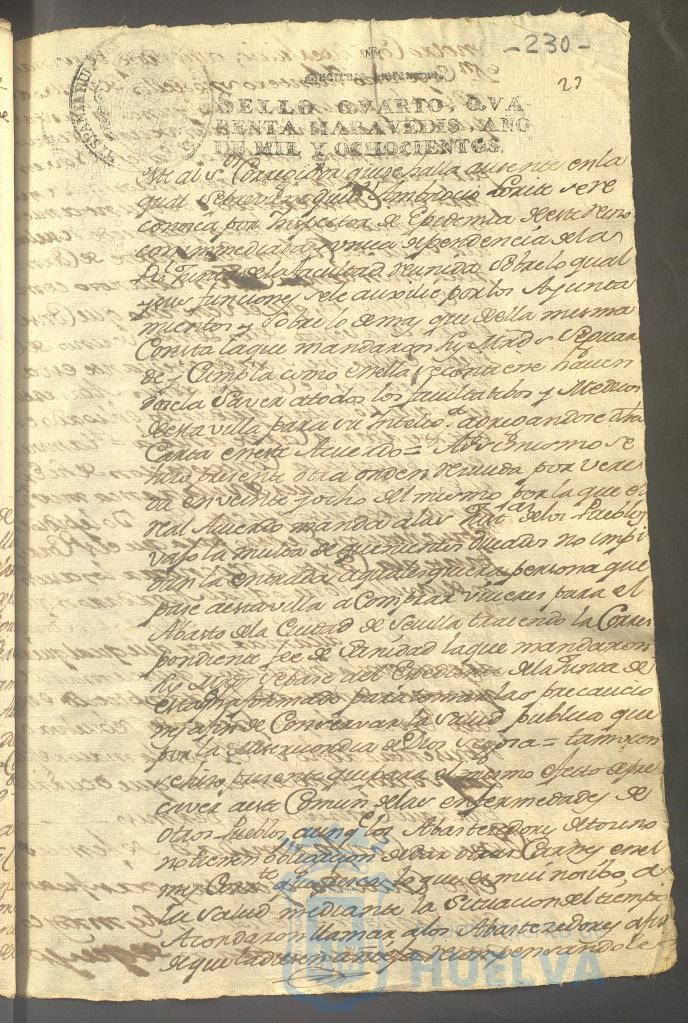 -230-
27
SELLO QVARTO, QVA-
RENTA MARAVEDIS, AÑO
DE MIL Y OCHOCIENTOS.
al Sr. Corregidor que se halla ausente en la
qual se previene que Dn. Ambrosio se re
conozca por Inspector de Epidemia de este Reyno
con inmediata y unica dependencia de la
Rl. Junta de la facultad reunida sobre lo qual
y sus funciones se le auxilie por los Ayunta
mientos y sobre lo demas que de ella misma
Consta la que mandaron sus Mrds. se guar
de y Cumpla como en ella se contiene hacien
dosela Saver a todos los facultatibos y Medicos
de esta villa para su Intelixa. agregandose dha
Carta en este Acuerdo = Asi mismo se
hizo presente otra orden recivida por vere
da en veinte y ocho del mismo por la que el
Real Acuerdo manda a las de los Pueblos
vajo la multa de quinientos ducados no impi
dan la entrada a qualesquiera persona que
pase a esta villa a Comprar viveres para el
Abasto de la Ciudad de Sevilla trayendo la Corres
pondiente fee de Sanidad la que mandaron
sus Mrds. de la Junta de
para tomar las precaucio
nes a fin de Conservar la salud publica que
por la Misericordia de Dios se goza = tamvien
se hizo presente que para el mismo efecto de pre
caver a este Comun de las enfermedades de
otros Pueblos, aunqe. los Abastecedores
no tienen obligacion de dar otras Carnes en el
mes Corrte. lo que es mui nocibo, a
la salud mediante la situacion del tiempo
Acordaron llamar a los Abastecedores a fin
de que
HUELVA